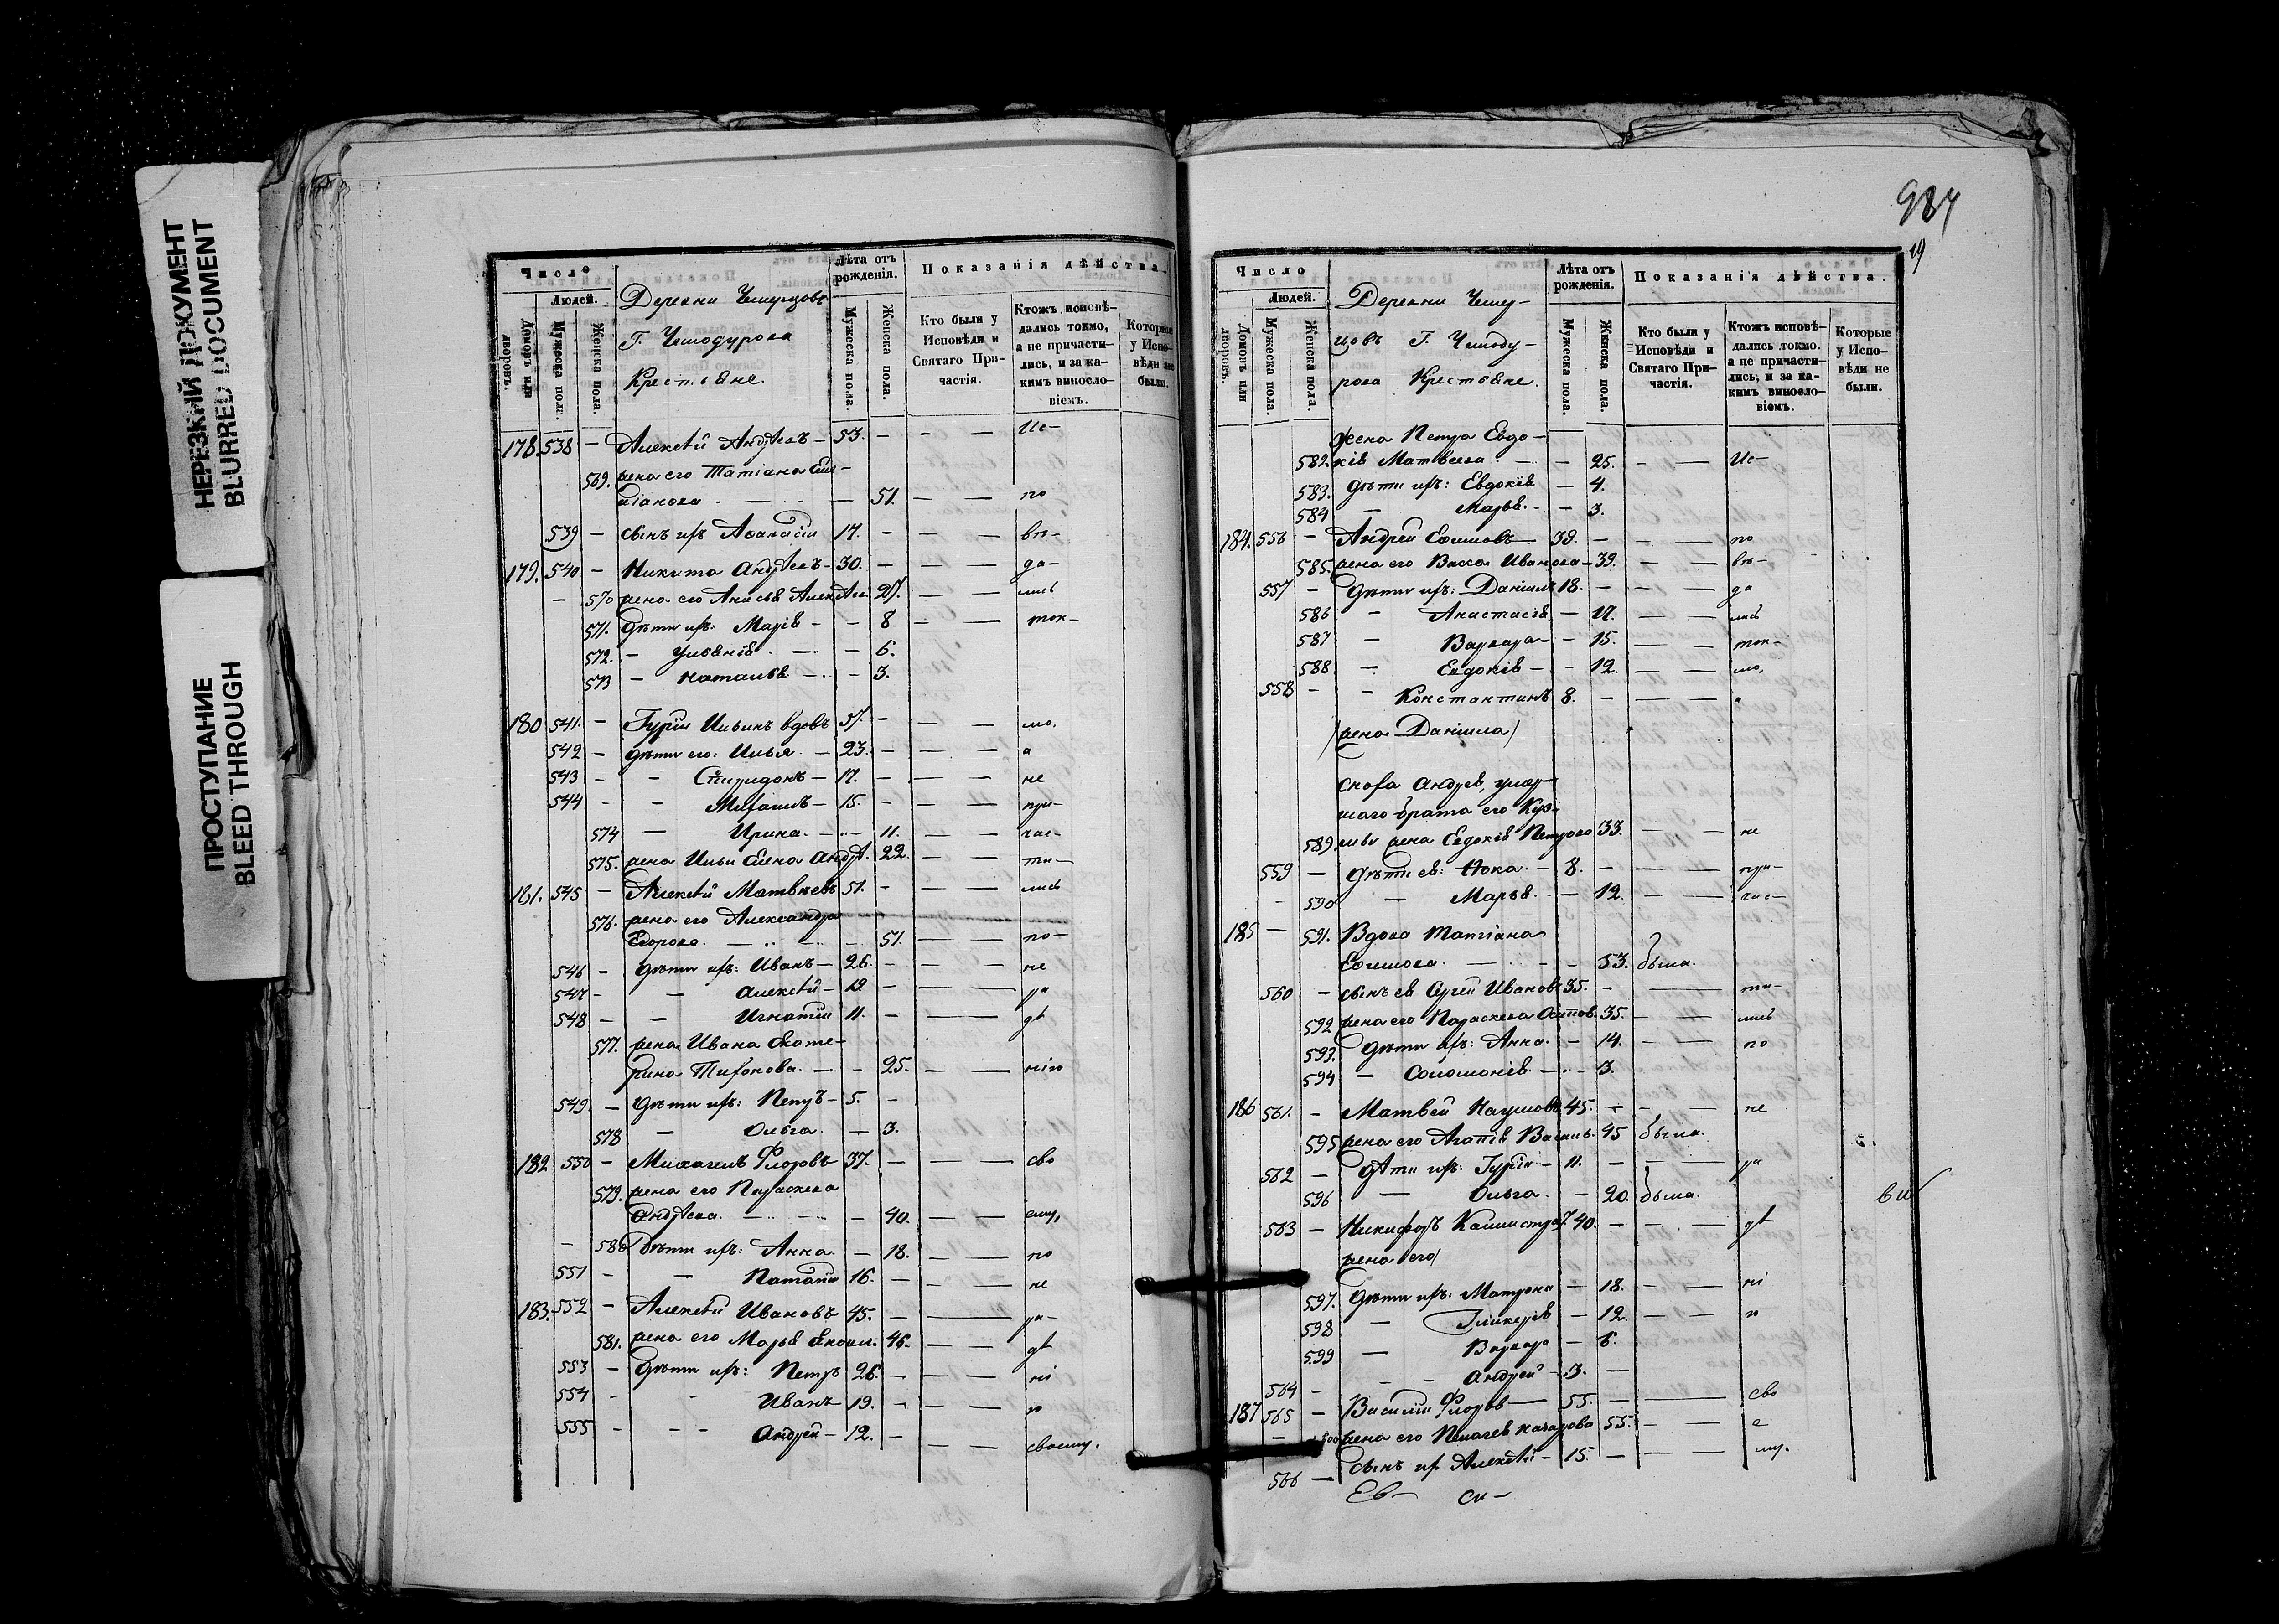 НЕРЕЗКИЙ ДОКУМЕНТ
BLURRED DOCUMENT
ПРОСТУПАНИЕ
BLEED THROUGH
Число
Людей.
Домовъ или дворовъ.
Мужеска пола.
Женска пола.
Деревни
Г. Чемодурова
Крестьяне.
Лѣта отъ рожденія.
Мужеска пола.
Женска пола.
Показанія дѣйства.
Кто были у Исповѣди и Святаго Причастія.
Ктожъ исповѣдались токмо, а не причастились, и за какимъ винословіемъ.
Которые у Исповѣди не были.
178. 538 — Алексѣй Андрѣевъ — 53. — — — Ис—
569. жена его Татіана Еме-
ліанова — — 51. — — по
539 — сынъ ихъ Аѳанасій 17. — — — вѣ—
179. 540 — Никита Андрѣевъ — 30. — — — да—
— 570 жена его Анисья Алексѣева 27. — — лись
571. дѣти ихъ: Марія — — 8 — — ток—
572. — Ульянія — — 6.
573 — Наталья — — 3.
180 541. — Гурій Ильинъ вдовъ 57. — — — мо.
542 — дѣти его: Илья — 23. — — — а
543 — — Спиридонъ — 17. — — — не
544 — — Михаилъ — 15. — — — при—
574 — Ирина — — 11. — — час—
575. жена Ильи Елена Андрѣ. 22. — — ти—
181. 545 — Алексѣй Матвѣевъ 51. — — — лись
576. жена его Александра
Егорова — — 51. — — по—
546 — дѣти ихъ: Иванъ — 26. — — — не
547 — — Алексѣй — 19 — — — ра
548 — — Игнатій 11. — — — дѣ
577. жена Ивана Екате-
рина Тихонова — — 25. — — нію
549 — дѣти ихъ: Петръ — 5. —
578 — Ольга — 3.
182 550 — Михаилъ Флоровъ 37. — — — сво
579. жена его Параскева
Андрѣева — — 40. — — ему,
— 580 дѣти ихъ: Анна — 18. — — по
551 — — 16. — — — не
183. 552 — Алексѣй Ивановъ 45. — — — ра—
581. жена его Марья 46. — — дѣ
553 — дѣти ихъ: Петръ 26. — — — ні
554 — — Иванъ — 19. — — — ю
555 — — — Андрей — 12. — — — своему.
984
19
Число
Людей.
Домовъ или дворовъ.
Мужеска пола.
Женска пола.
Деревни
Г. Чемоду-
рова Крестьяне.
Лѣта отъ рожденія.
Мужеска пола.
Женска пола.
Показанія дѣйства.
Кто были у Исповѣди и Святаго Причастія.
Ктожъ исповѣдались токмо. а не причастились, и за какимъ винословіемъ.
Которые у Исповѣди не были.
жена Петра Евдо-
582. кія Матвѣева — — 25. — — Ис—
583. дѣти ихъ: Евдокія — 4.
584 — Марья — — 3.
184. 556 — Андрей Еѳимовъ — 39. — — — по
585. жена его Васса Иванова — 39. — — вѣ—
557 — дѣти ихъ: Даніилъ 18. — — — да
586 — Анастасія — 17. — — лись
587 — Варвара — — 15. — — ток—
588 — Евдокія — — 12. — — мо,
558 — — Константинъ 8. — — — а
(жена Даніила)
сноха Андрея, умер-
шаго брата его Кузь-
589. мы жена Евдокія Петрова 33. — — не
559 — дѣти ея: — 8. — — — при—
— 590 — Марья — 12. — — час—
185 — 591. Вдова Татіана
Еѳимова — — 53. была.
560 — сынъ ея Сергѣй Ивановъ 35. — — ти—
592 жена его Параскева Осипов. 35. — — лись
593. дѣти ихъ: Анна — 14. — — по
594 — Соломонія — — 3.
186 561. — Матвѣй Наумовъ 45. — — — не
595 жена его Агапія Василь. 45 была.
562 — дѣти ихъ: Гурій — 11. — — ра
596 — Ольга — 20. была.
563 — Никифоръ 40. — — — дѣ
жена его)
597. дѣти ихъ: Матрона — 18. — — ні
598 — Гликерія — 12. — — ю
599 — Варвара — 6.
564 — — Андрей — 3. —
187 565 — Василій Флоровъ — 55. — — сво
жена его 55. — — е
566 — сынъ ихъ Алексѣй — 15. — — — му.